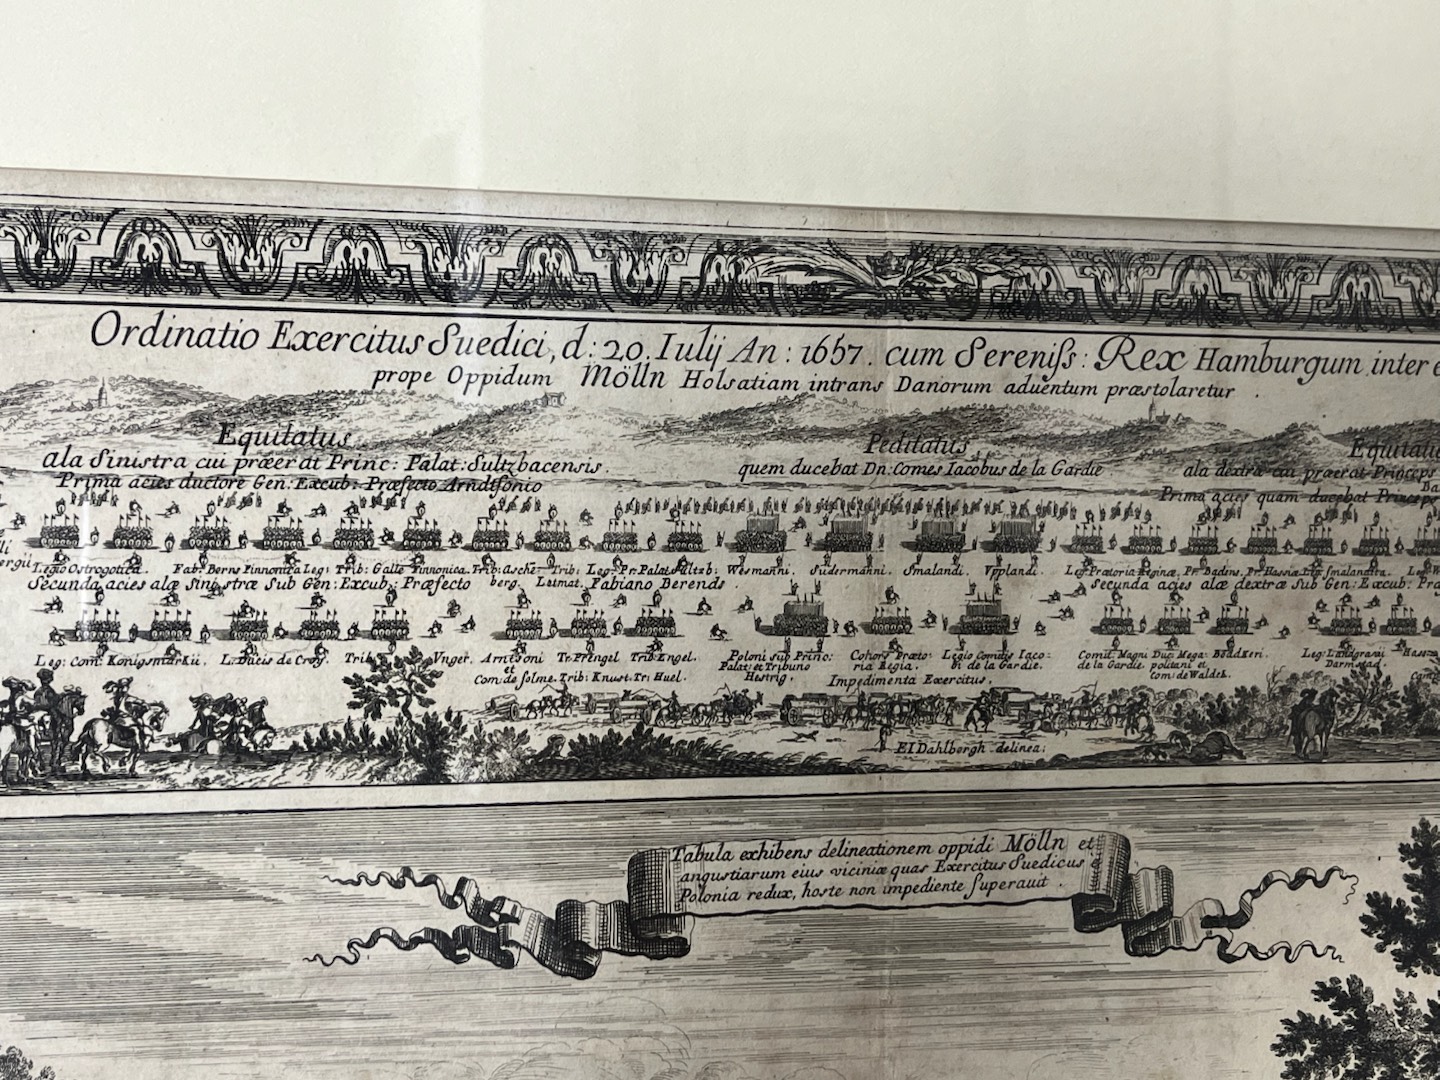 Ordinatio Exercitus Suedici, d: 20. Iulij An: 1657. cum Sereniss: Rex Hamburgum inter
prope Oppidum Mölln Holsatiam intrans Danorum aduentum præstolaretur.
Equitatus
ala Sinistra cui præerat Princ: Palat: Sultzbacensis.
Prima acies ductore Gen: Excub: Præfecto Arndtsonio
Peditatus
quem ducebat Dn: Comes Iacobus de la Gardie
ala dextra cui præerat Princeps
Prima acies quam ducebat Princeps
Legio Ostrogotica. Fab: Berns Finnonica Leg: Trib: Galle Finnonica. Trib: Asche- Trib: Leg: Pr. Palat: Sultzb: Wesmanni. Sudermanni. Smalandi. Vpplandi. Leg: Prætoria Reginæ. Pr. Badens. Pr. Hassiæ Leg: Smalandica.
berg. Letmat.
Secunda acies alæ Sinistræ Sub Gen: Excub: Præfecto Fabiano Berends.
Secunda acies alæ dextræ Sub Gen: Excub:
Leg: Com: Konigsmarkii. L: Ducis de Croy. Trib: Vnger. Arntsoni Tr: Prengel Trib: Engel. Poloni sub Princ: Cohors Præto- Legio Comitis Iaco- Comit: Magni Duc: Mega- Böddkeri. Leg: Landgravii
et Palat: et Tribuno ria Regia. bi de la Gardie. de la Gardie. politani et Darmstad.
Com: de Solme. Trib: Knust. Tr: Huel. Hestrig. Impedimenta Exercitus. Com: de Waldek.
EI Dahlbergh delinea:
Tabula exhibens delineationem oppidi Mölln et
angustiarum eius viciniæ quas Exercitus Suedicus e
Polonia redux, hoste non impediente superauit.